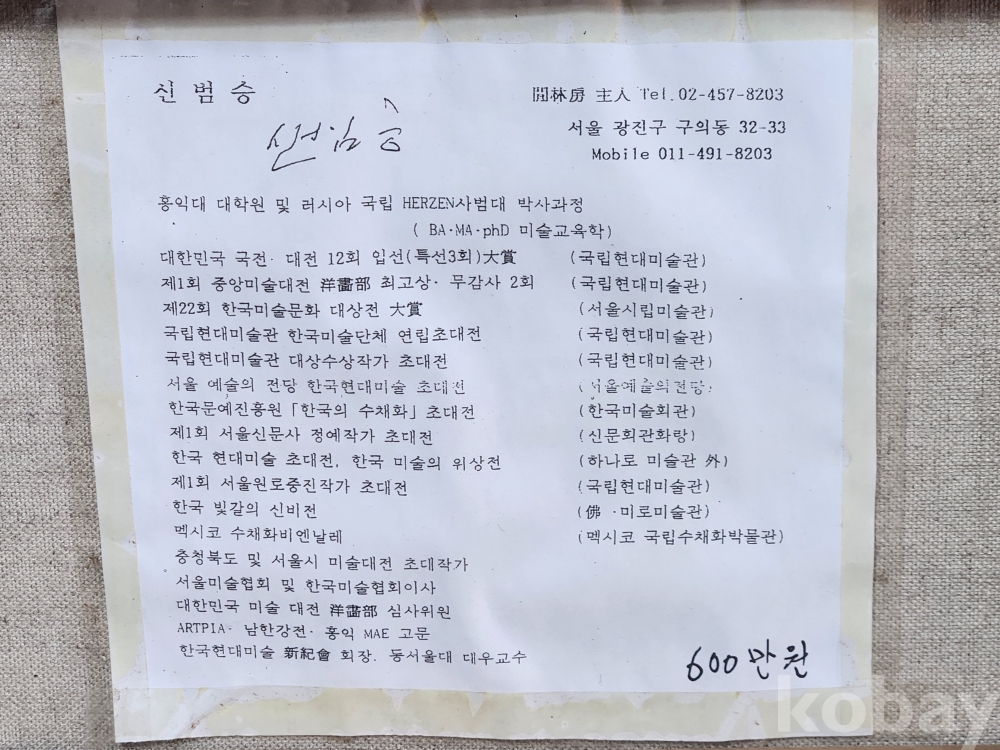 신 범 승
林房 主人 Tel.02-457-8203
서울 광진구 구의동 32-33
Mobile 011-491-8203
홍익대 대학원 및 러시아 국립 HERZEN사범대 박사과정
( BA·MA·phD 미술교육학)
대한민국 국전· 대전 12회 입선(특선3회)大賞 (국립현대미술관)
제1회 중앙미술대전 洋畵部 최고상· 무감사 2회 (국립현대미술관)
제22회 한국미술문화 대상전 大賞 (서울시립미술관)
국립현대미술관 한국미술단체 연립초대전 (국립현대미술관)
국립현대미술관 대상수상작가 초대전 (국립현대미술관)
서울 예술의 전당 한국현대미술 초대전 (서울예술의전당)
한국문예진흥원「한국의 수채화」초대전 (한국미술회관)
제1회 서울신문사 정예작가 초대전 (신문회관화랑)
한국 현대미술 초대전, 한국 미술의 위상전 (하나로 미술관 外)
제1회 서울원로중진작가 초대전 (국립현대미술관)
한국 빛깔의 신비전 (佛 ·미로미술관)
멕시코 수채화비엔날레 (멕시코 국립수채화박물관)
충청북도 및 서울시 미술대전 초대작가
서울미술협회 및 한국미술협회이사
대한민국 미술 대전 洋畵部 심사위원
ARTPIA· 남한강전· 홍익 MAE 고문
한국현대미술 新紀會 회장. 동서울대 대우교수
600만원
kobay